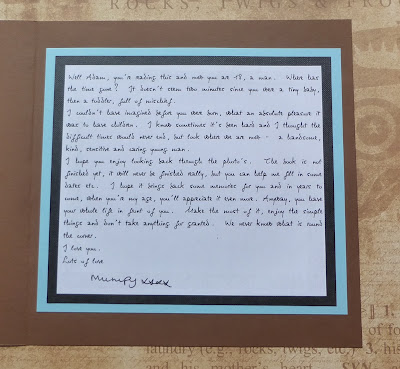 ROCK
Well Adam, you're reading this and now you are 18, a man. Where has
the time gone? It doesn't seem two minutes since you were a tiny baby,
then a toddler, full of mischief.
I couldn't have imagined before you were born, what an absolute pleasure it
was to have children. I know sometimes it's been hard and I thought the
difficult times would never end, but look where we are now - a handsome,
kind, sensitive and caring young man.
I hope you enjoy looking back through the photo's. The book is not
finished yet, it will never be finished really, but you can help me fill in some
dates etc. I hope it brings back some memories for you and in years to
come, when you're my age, you'll appreciate it even more. Anyway, you have
your whole life in front of you. Make the most of it, enjoy the simple
things and don't take anything for granted. We never know what is round
the corner.
I love you.
Lots of love
Mumpy xxxx
¶ 1.
of fo
laundry (e.g., rocks, twigs, etc.) 3. his
and his mother's heart.